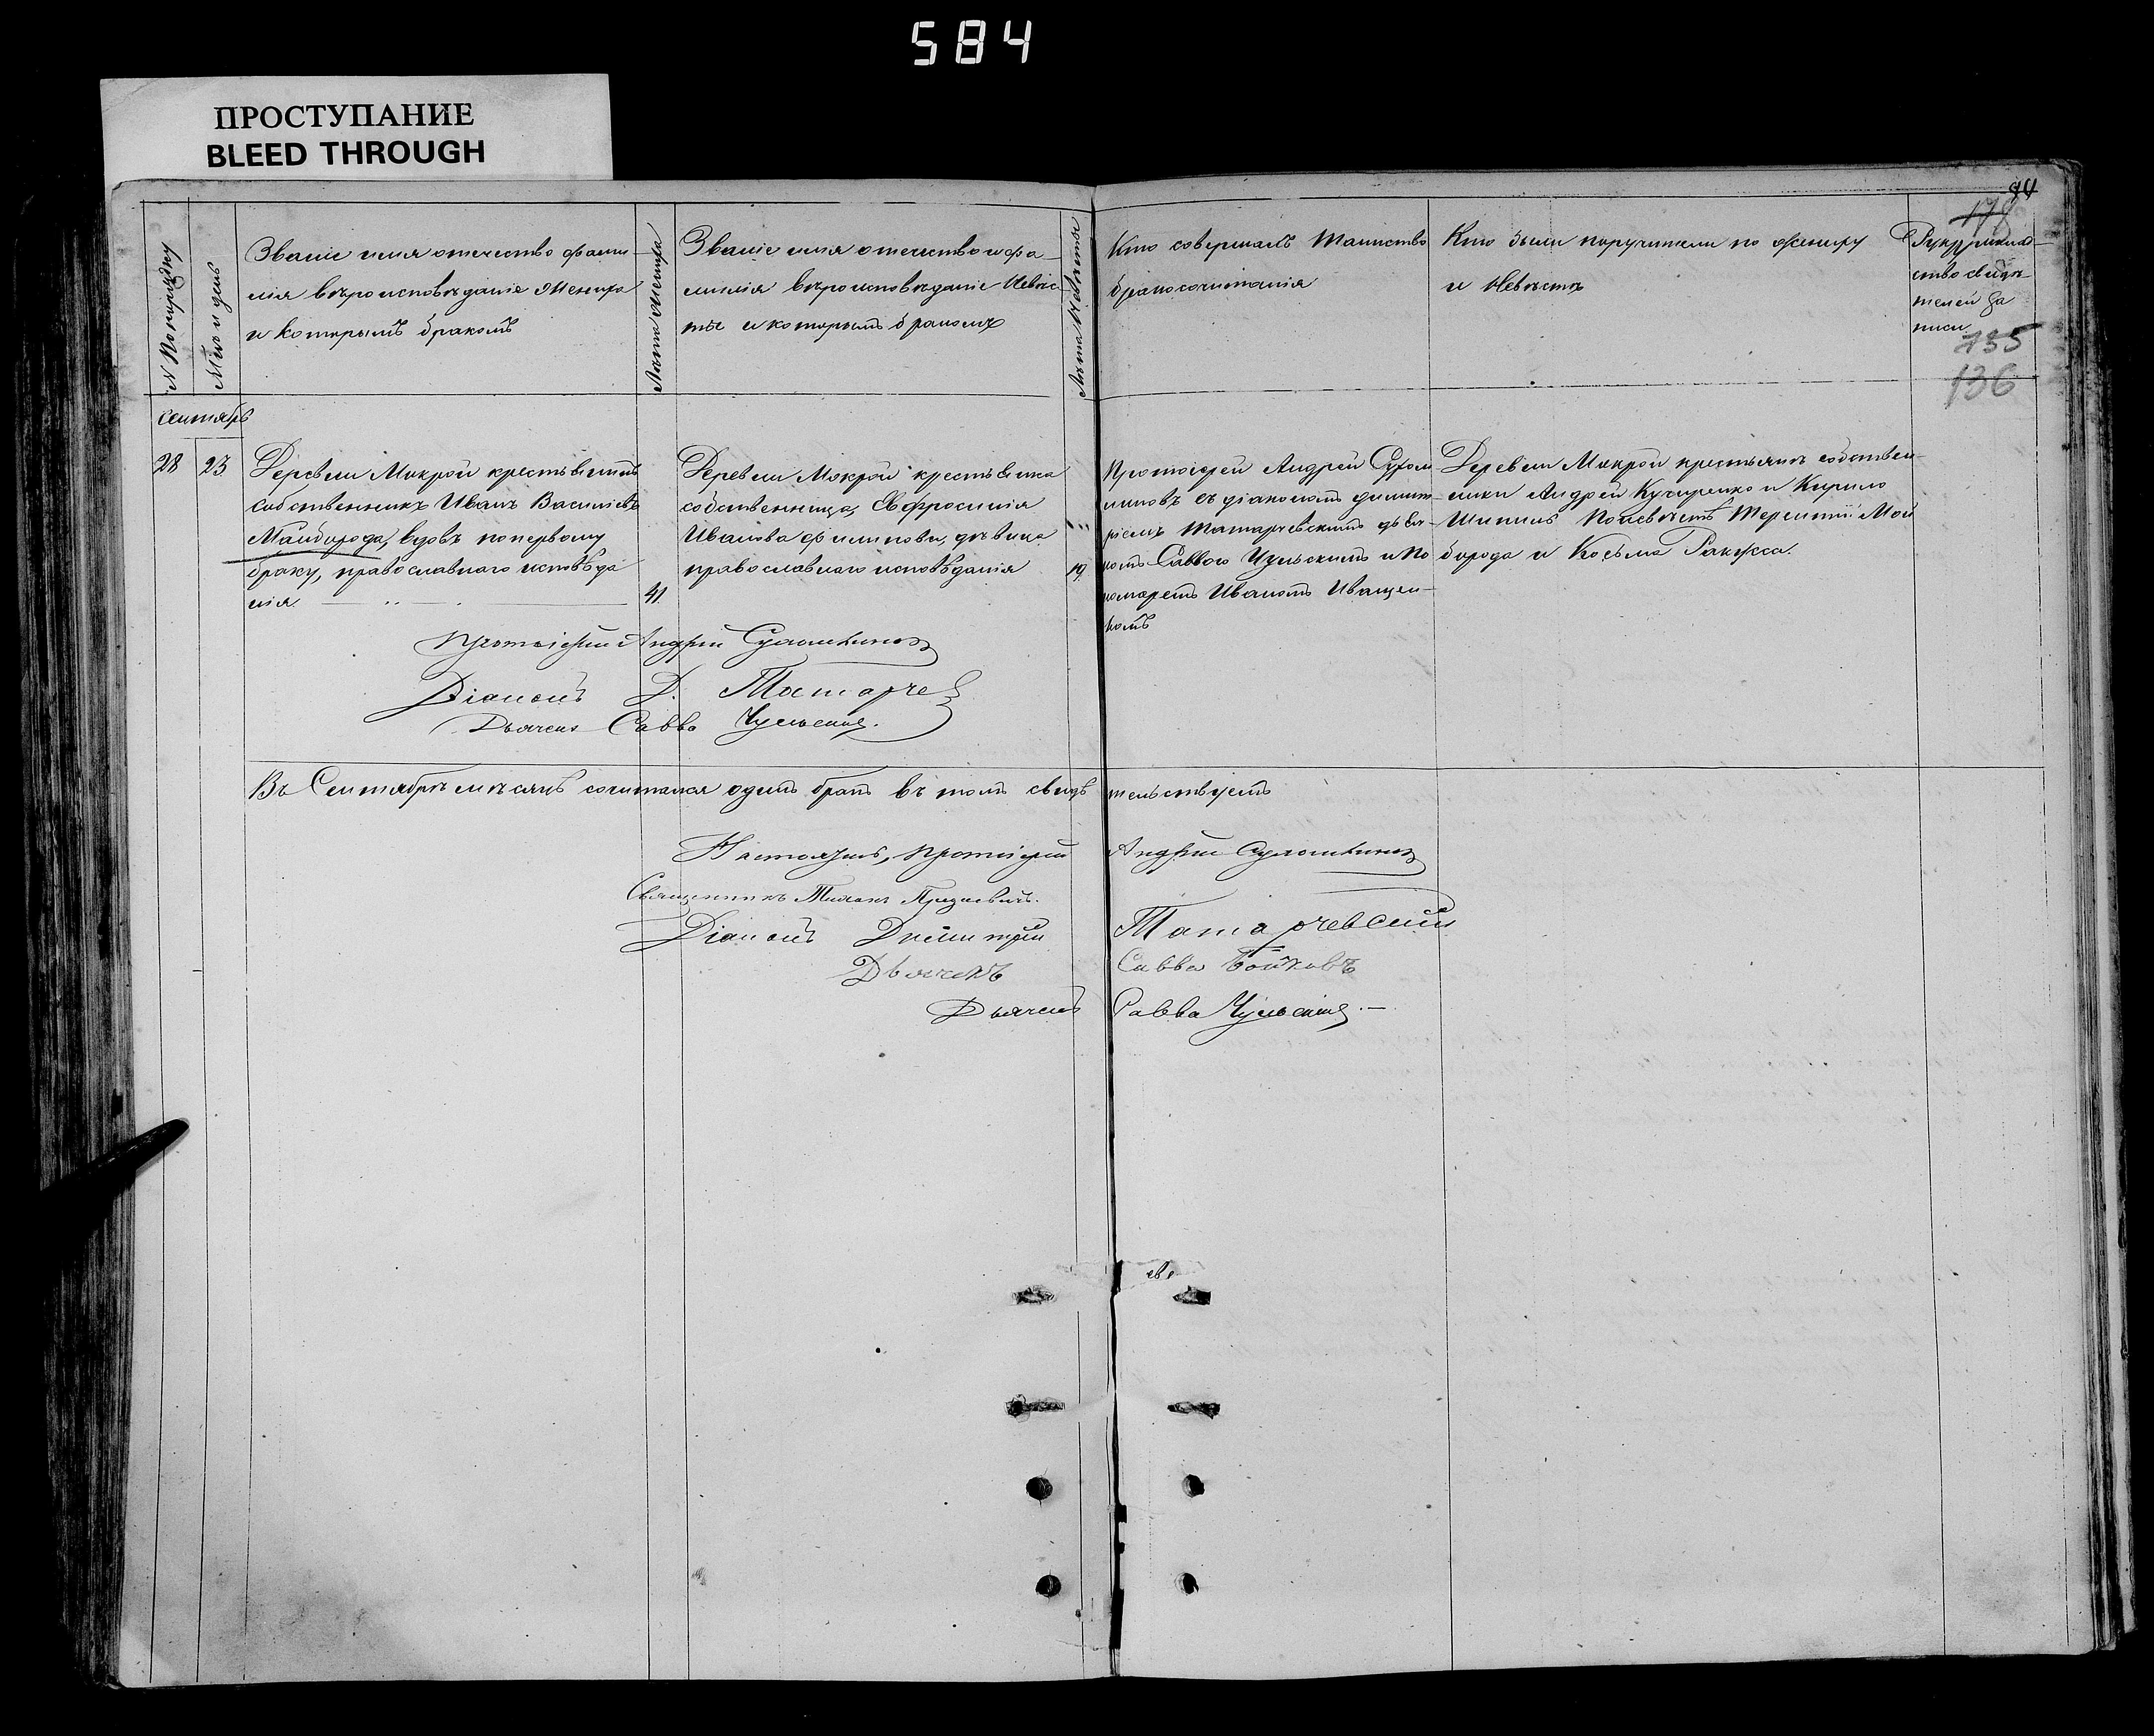 584
ПРОСТУПАНИЕ
BLEED THROUGH
94
178
135
136
№ по порядку
М-цъ и день
Званіе имя отечество фами-
лія вѣроисповѣданіе Жениха
и которымъ бракомъ
Лѣта Жениха
Званіе имя отечество и фа-
милія вѣроисповѣданіе Невѣс
ты и которымъ бракомъ
Лѣта Невѣсты
Кто совершалъ таинство
бракосочитанія
Кто были поручители по жениху
и Невѣстѣ
Рукоприклад-
ство свидѣ
телей за
писи
Сентябрь
28 23
Деревни Мокрой крестьянинъ
собственникъ Иванъ Василіевъ
Майборода, вдовъ по первому
браку, православнаго исповѣда
нія 41.
Деревни Мокрой крестьянка
собственница, Евфросинія
Иванова Филипова, дѣвица
православнаго исповѣданія 19
Протоіерей Андрей Сухом
линовъ съ діакономъ Димит-
ріемъ Татарчевскимъ дьяч-
комъ Саввою Чульскимъ и По
номаремъ Иваномъ Иващен-
комъ
Деревни Мокрой крестьяне собствен-
ники Андрей Кучеренко и Кирило
Шипиль По невѣстѣ Терентій Май
борода и Косьма Ракусса.
Протоіерей Андрей Сухомлиновъ
Діаконъ Д. Татарчев
Дьячекъ Савва Чульскій.
Въ Сентябрѣ мѣсяцѣ сочитался одинъ бракъ въ томъ свидѣтельствуетъ
Настоятель, Протоіерей Андрей Сухомлиновъ
Священникъ
Діаконъ Димитрій Татарчевскій
Дьячекъ Савва Бойковъ
Дьячекъ Савва Чульскій.—